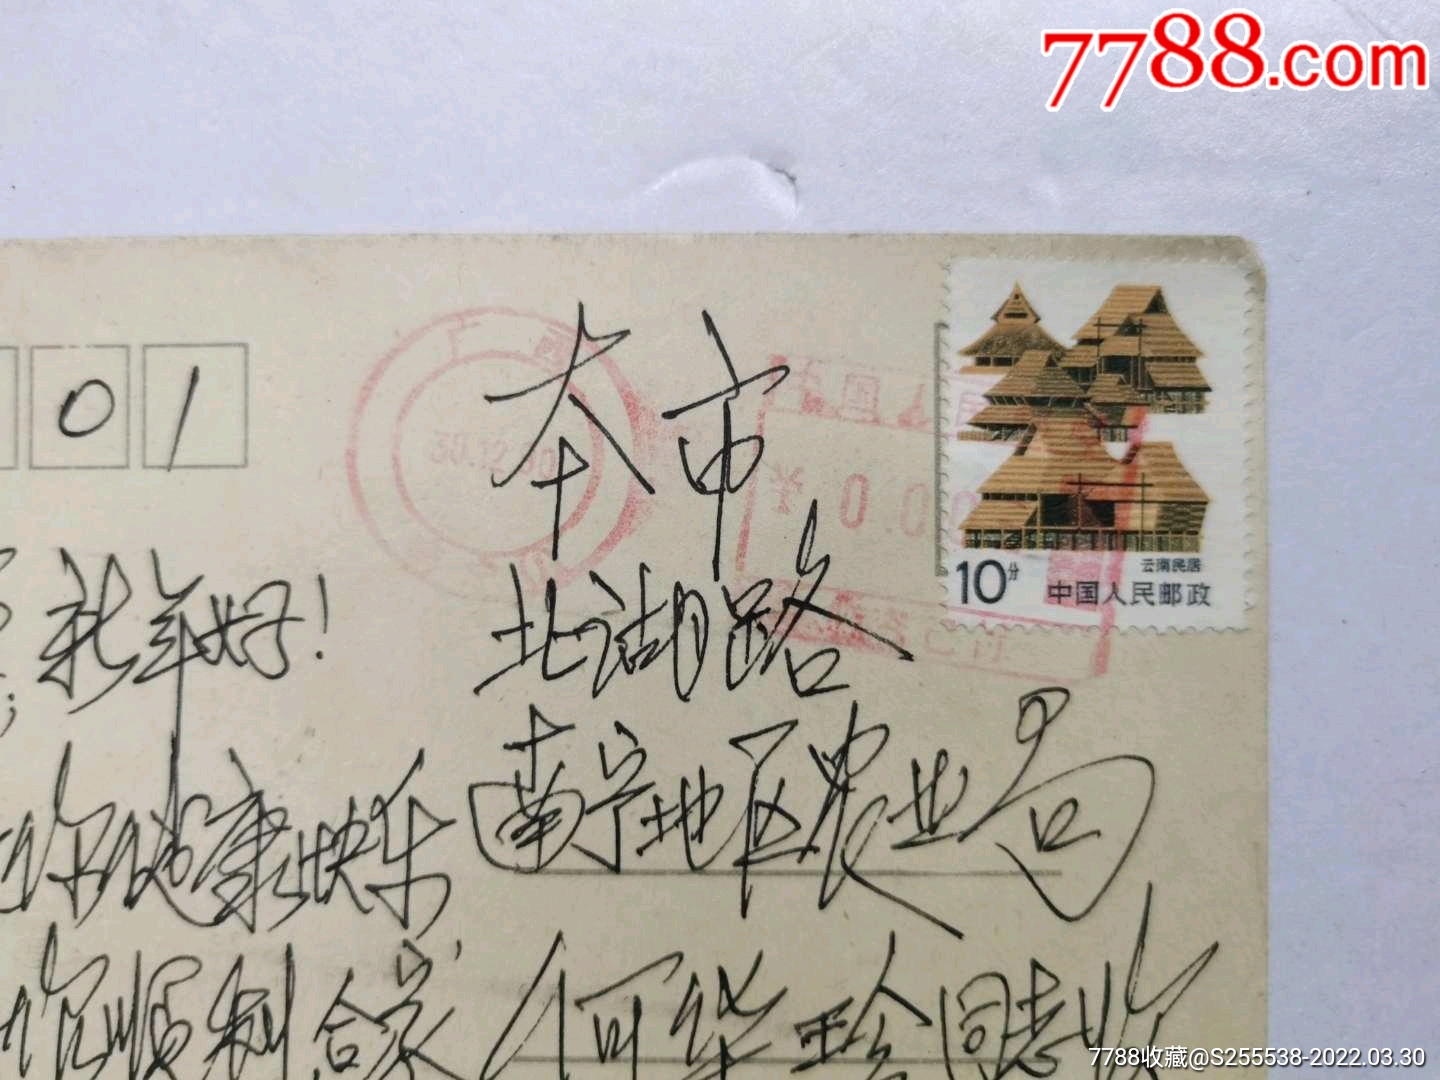 7788.com
广西
30.12.90
中国人民
0.00
已付
01
云南民居
10分
中国人民邮政
本市
北湖路
南宁地区农业局
何华珍同志收
新年好!
你健康快乐
顺利 合家
7788收藏@S255538-2022.03.30